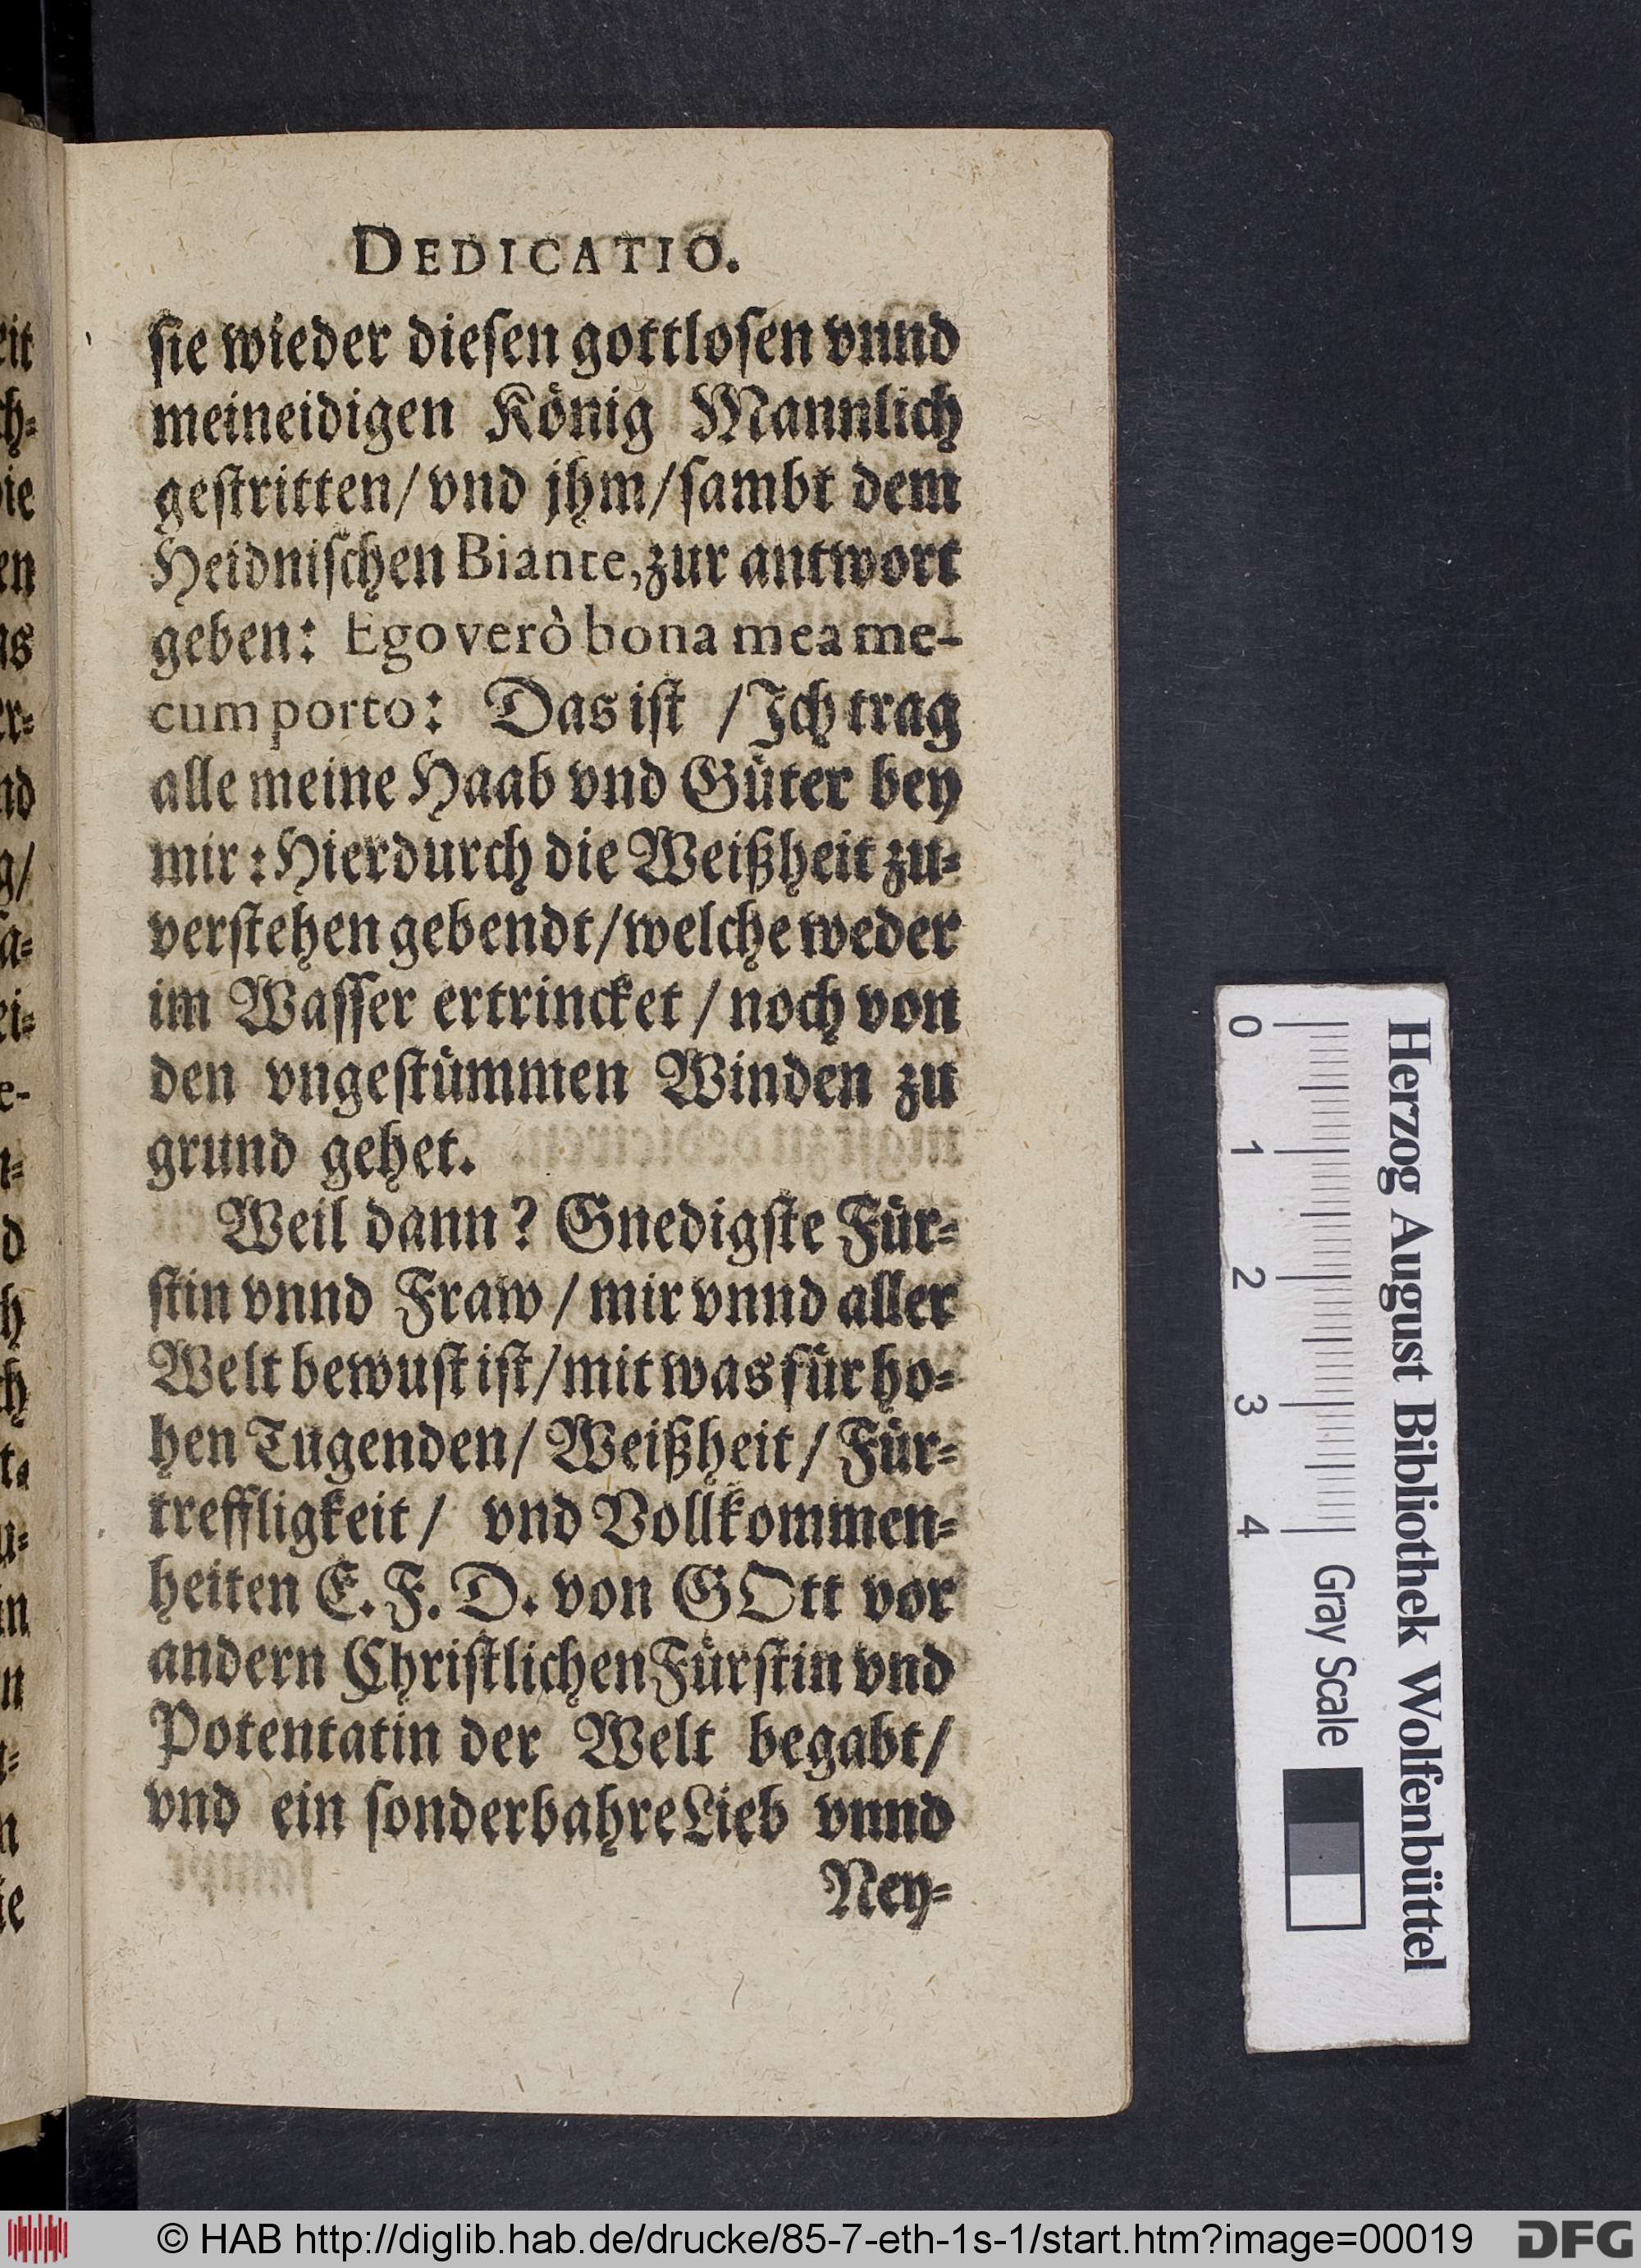 DEDICATIO.
sie wieder diesen gottlosen vnnd
meineidigen König Mannlich
gestritten/ vnd jhm/ sambt dem
Heidnischen Biante, zur antwort
geben: Ego verò bona mea me-
cum porto: Das ist / Ich trag
alle meine Haab vnd Güter bey
mir: Hierdurch die Weißheit zu-
verstehen gebendt/ welche weder
im Wasser ertrincket / noch von
den vngestümmen Winden zu
grund gehet.
Weil dann? Gnedigste Für-
stin vnnd Fraw / mir vnnd aller
Welt bewust ist/ mit was für ho-
hen Tugenden/ Weißheit/ Für-
treffligkeit/ vnd Vollkommen-
heiten E. F. D. von GOtt vor
andern Christlichen Fürstin vnd
Potentatin der Welt begabt/
vnd ein sonderbahre Lieb vnnd
Ney-
Herzog August Bibliothek Wolfenbüttel
0 1 2 3 4 Gray Scale
© HAB http://diglib.hab.de/drucke/85-7-eth-1s-1/start.htm?image=00019
DFG